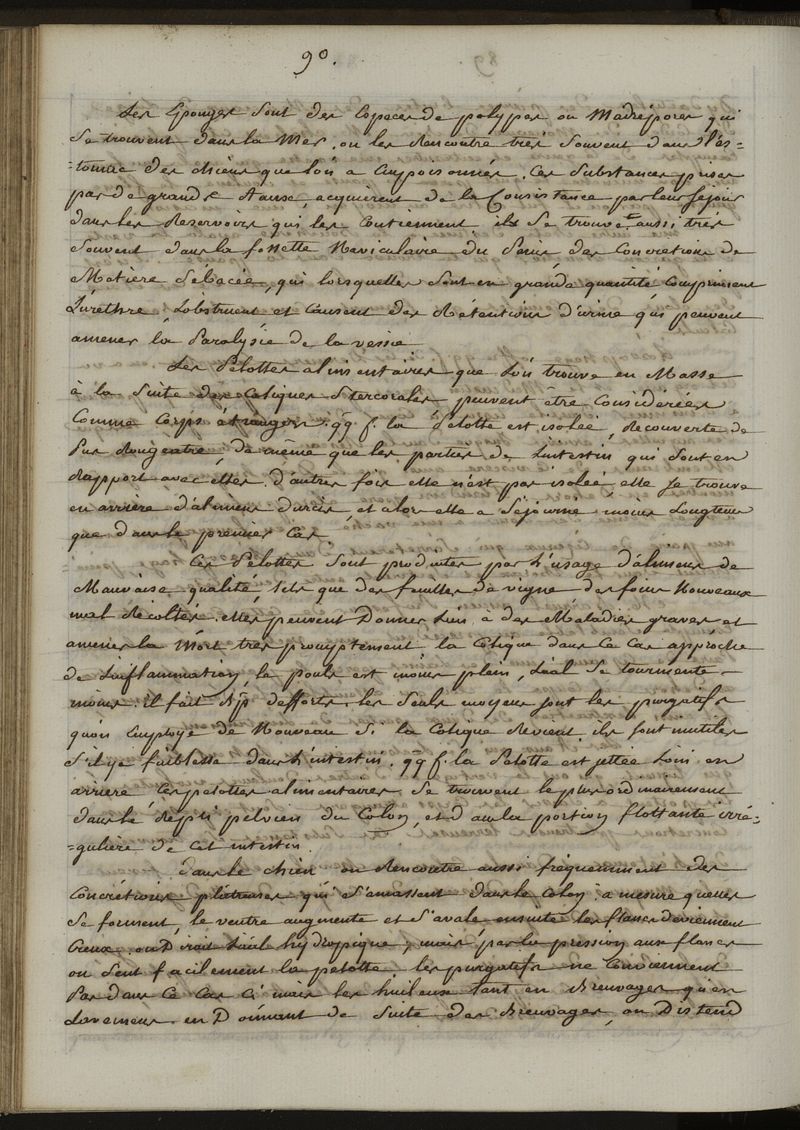 90.
Les Eponges sont des Especes de polypes ou Madrepores qui
se trouvent dans la Mer. on les Rencontre très souvent dans l'es-
-tomac des chiens que l'on a Empoisonnés. Ces Substances prises
par de grands Animaux, acquierent de la Consistance par leur séjour
dans les Reservoirs qui les Contiennent. ils se trouve aussi très
souvent dans la fossette Naviculaire du Penis des Concretions de
Matière Sebacée, qui lorsquelles sont en grande quantité Compriment
L'urèthre, Lobstruent et Causent des Rétentions d'urine qui peuvent
amener la Paralysie de la vessie
Les Pelottes alimentaires que L'on trouve en Masse
à la Suite des Coliques Stercorales peuvent être Considérées
Comme Corps étrangers. qq f. la Pelotte est isolée, Recouverte de
Pus Rougeatre, de même que les parties de Lintestin qui sont en
Rapport avec elles. d'autres fois elle n'est pas isolée, elle se trouve
en arrière d'alimens durcis, et alors elle a Séjourné moins Longtems
que dans le premier Cas.
Ces Pelottes sont produites par L'usage d'alimens de
Mauvaise qualité, tels que des feuilles de vigne des foins Nouveaux
mal Récoltés. elles peuvent Donner Lieu à des Maladies graves et
amener la Mort très promptement. la Colique dans Ce Cas approche
de Linflammation, le pouls est moins plein, Lâal se tourmente
moins. il fait d'efforts. les seuls moyens sont les purgatifs
quon Employe de Nouveau Si la Colique Revient. ils sont inutiles
S'il ya faiblesse dans L'intestin. qq f. la Pelotte est jettée Loin en
arriere Ces pelottes alimentaires Se trouvent le plus ordinairement
dans le Repli pelvien du Colon, et dans la portion flottante irré-
-gulière de Cet intestin.
Dans le chien on Rencontre aussi fréquemment des
Concrétions plâtreuses qui S'amassent dans le Colon. a mesure quelles
se forment, le ventre augmente et S'avale ensuite les flancs deviennent
Creux. on Dirait Lâal hydropique, mais par la pression aux flancs
on Sent facilement la pelotte. les purgatifs ne Conviennent
Pas dans Ce Cas Ci mais les huileux tant en Breuvages qu'en
Lavemens. en Donnant de Suite des Breuvages, on Distend